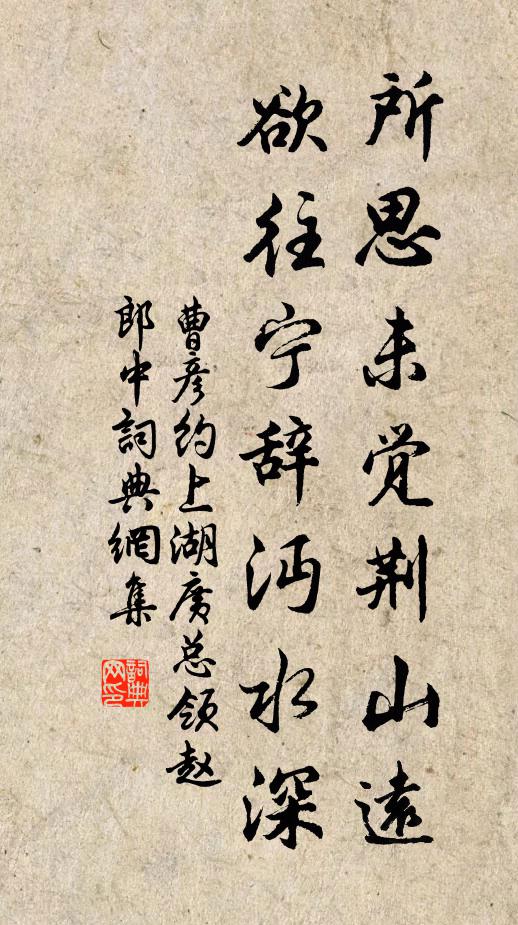 所思未觉荆山遠
欲往宁辞沔水深
曹彦约上湖廣总领赵
郎中詞典網集
詞典网印